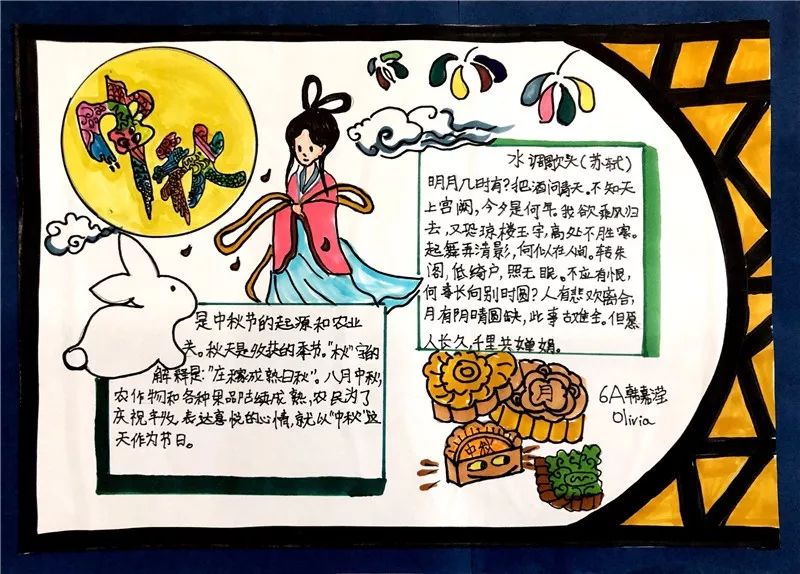 中秋
水调歌头(苏轼)
明月几时有?把酒问青天。不知天
上宫阙,今夕是何年。我欲乘风归
去,又恐琼楼玉宇,高处不胜寒。
起舞弄清影,何似在人间。转朱
阁,低绮户,照无眠。不应有恨,
何事长向别时圆?人有悲欢离合,
月有阴晴圆缺,此事古难全。但愿
人长久,千里共婵娟。
是中秋节的起源和农业
关。秋天是收获的季节。"秋"字的
解释是:"庄稼成熟曰秋"。八月中秋,
农作物和各种果品陆续成熟,农民为了
庆祝丰收,表达喜悦的心情,就以"中秋"这
天作为节日。
月
中秋
6A韩嘉滢
Olivia